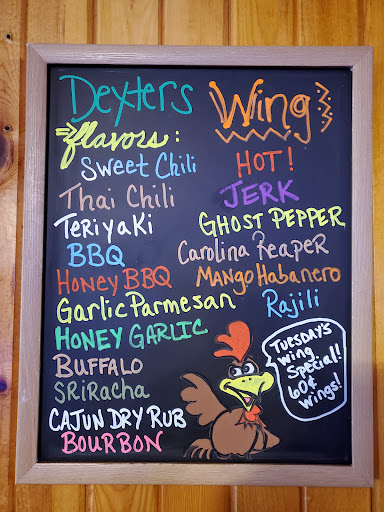 Dexters Wing
flavors:
Sweet Chili
Thai Chili
TeriyaKi
BBQ
HONEY BBQ
Garlic Parmesan
HONEY GARLIC
BUFFALO
SRiRacha
CAJUN DRY RUB
BOURBON
HOT!
JERK
GHOST PEPPER
Carolina Reaper
MANGO Habanero
Rajili
TUESDAY'S
wing
Special!
60¢
wings!